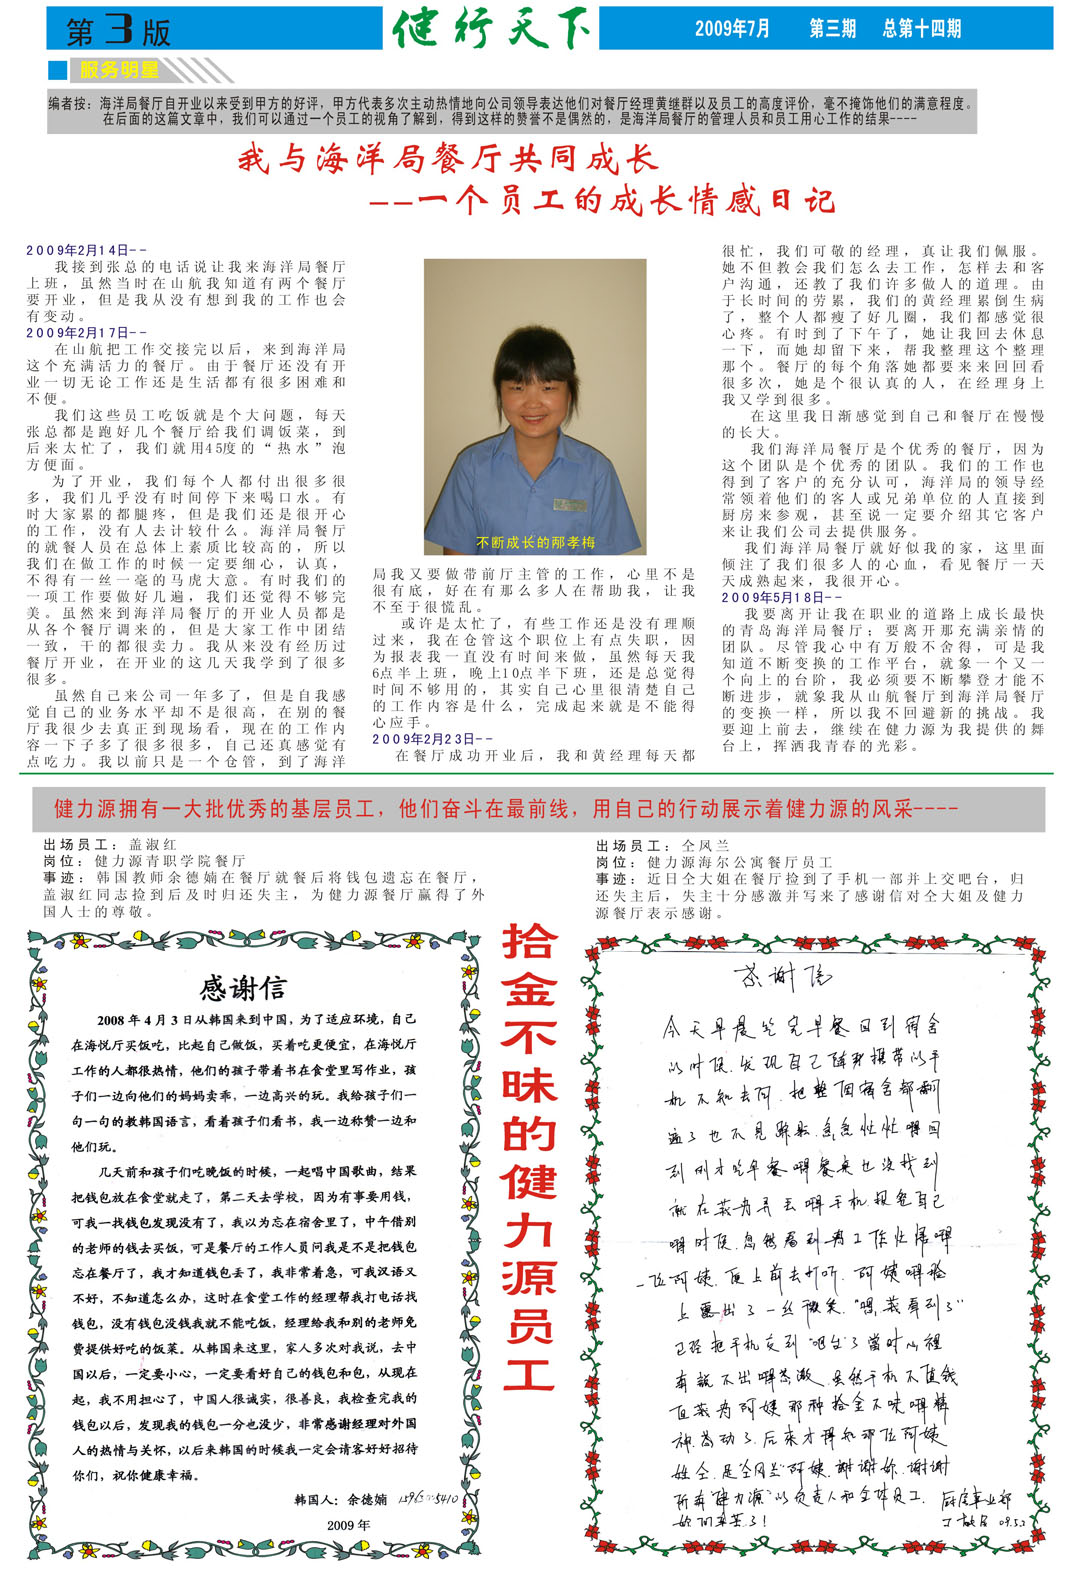 第3版
健行天下
2009年7月 第三期 总第十四期
服务明星
编者按：海洋局餐厅自开业以来受到甲方的好评，甲方代表多次主动热情地向公司领导表达他们对餐厅经理黄继群以及员工的高度评价，毫不掩饰他们的满意程度。
在后面的这篇文章中，我们可以通过一个员工的视角了解到，得到这样的赞誉不是偶然的，是海洋局餐厅的管理人员和员工用心工作的结果----
我与海洋局餐厅共同成长
--一个员工的成长情感日记
2009年2月14日--
我接到张总的电话说让我来海洋局餐厅
上班，虽然当时在山航我知道有两个餐厅
要开业，但是我从没有想到我的工作也会
有变动。
2009年2月17日--
在山航把工作交接完以后，来到海洋局
这个充满活力的餐厅。由于餐厅还没有开
业一切无论工作还是生活都有很多困难和
不便。
我们这些员工吃饭就是个大问题，每天
张总都是跑好几个餐厅给我们调饭菜，到
后来太忙了，我们就用45度的“热水”泡
方便面。
为了开业，我们每个人都付出很多很
多，我们几乎没有时间停下来喝口水。有
时大家累的都腿疼，但是我们还是很开心
的工作，没有人去计较什么。海洋局餐厅
的就餐人员在总体上素质比较高的，所以
我们在做工作的时候一定要细心，认真，
不得有一丝一毫的马虎大意。有时我们的
一项工作要做好几遍，我们还觉得不够完
美。虽然来到海洋局餐厅的开业人员都是
从各个餐厅调来的，但是大家工作中团结
一致，干的都很卖力。我从来没有经历过
餐厅开业，在开业的这几天我学到了很多
很多。
虽然自己来公司一年多了，但是自我感
觉自己的业务水平却不是很高，在别的餐
厅我很少去真正到现场看，现在的工作内
容一下子多了很多很多，自己还真感觉有
点吃力。我以前只是一个仓管，到了海洋
不断成长的邴孝梅
局我又要做带前厅主管的工作，心里不是
很有底，好在有那么多人在帮助我，让我
不至于很慌乱。
或许是太忙了，有些工作还是没有理顺
过来，我在仓管这个职位上有点失职，因
为报表我一直没有时间来做，虽然每天我
6点半上班，晚上10点半下班，还是总觉得
时间不够用的，其实自己心里很清楚自己
的工作内容是什么，完成起来就是不能得
心应手。
2009年2月23日--
在餐厅成功开业后，我和黄经理每天都
很忙，我们可敬的经理，真让我们佩服。
她不但教会我们怎么去工作，怎样去和客
户沟通，还教了我们许多做人的道理。由
于长时间的劳累，我们的黄经理累倒生病
了，整个人都瘦了好几圈，我们都感觉很
心疼。有时到了下午了，她让我回去休息
一下，而她却留下来，帮我整理这个整理
那个。餐厅的每个角落她都要来来回回看
很多次，她是个很认真的人，在经理身上
我又学到很多。
在这里我日渐感觉到自己和餐厅在慢慢
的长大。
我们海洋局餐厅是个优秀的餐厅，因为
这个团队是个优秀的团队。我们的工作也
得到了客户的充分认可，海洋局的领导经
常领着他们的客人或兄弟单位的人直接到
厨房来参观，甚至说一定要介绍其它客户
来让我们公司去提供服务。
我们海洋局餐厅就好似我的家，这里面
倾注了我们很多人的心血，看见餐厅一天
天成熟起来，我很开心。
2009年5月18日--
我要离开让我在职业的道路上成长最快
的青岛海洋局餐厅；要离开那充满亲情的
团队。尽管我心中有万般不舍得，可是我
知道不断变换的工作平台，就象一个又一
个向上的台阶，我必须要不断攀登才能不
断进步，就象我从山航餐厅到海洋局餐厅
的变换一样，所以我不回避新的挑战。我
要迎上前去，继续在健力源为我提供的舞
台上，挥洒我青春的光彩。
健力源拥有一大批优秀的基层员工，他们奋斗在最前线，用自己的行动展示着健力源的风采----
出场员工：盖淑红
岗位：健力源青职学院餐厅
事迹：韩国教师余德婻在餐厅就餐后将钱包遗忘在餐厅，
盖淑红同志捡到后及时归还失主，为健力源餐厅赢得了外
国人士的尊敬。
出场员工：仝凤兰
岗位：健力源海尔公寓餐厅员工
事迹：近日仝大姐在餐厅捡到了手机一部并上交吧台，归
还失主后，失主十分感激并写来了感谢信对仝大姐及健力
源餐厅表示感谢。
拾金不昧的健力源员工
感谢信
2008年4月3日从韩国来到中国，为了适应环境，自己
在海悦厅买饭吃，比起自己做饭，买着吃更便宜，在海悦厅
工作的人都很热情，他们的孩子带着书在食堂里写作业，孩
子们一边向他们的妈妈卖乖，一边高兴的玩。我给孩子们一
句一句的教韩国语言，看着孩子们看书，我一边称赞一边和
他们玩。
几天前和孩子们吃晚饭的时候，一起唱中国歌曲，结果
把钱包放在食堂就走了，第二天去学校，因为有事要用钱，
可我一找钱包发现没有了，我以为忘在宿舍里了，中午借别
的老师的钱去买饭，可是餐厅的工作人员问我是不是把钱包
忘在餐厅了，我才知道钱包丢了，我非常着急，可我汉语又
不好，不知道怎么办，这时在食堂工作的经理帮我打电话找
钱包，没有钱包没钱我就不能吃饭，经理给我和别的老师免
费提供好吃的饭菜。从韩国来这里，家人多次对我说，去中
国以后，一定要小心，一定要看好自己的钱包和包，从现在
起，我不用担心了，中国人很诚实，很善良，我检查完我的
钱包以后，发现我的钱包一分也没少，非常感谢经理对外国
人的热情与关怀，以后来韩国的时候我一定会请客好好招待
你们，祝你健康幸福。
韩国人：余德婻
2009年
感谢信
今天早晨吃完早餐回到宿舍
以时候，发现自己随身携带以手
机不知去向，把整个宿舍都翻
遍了也不见踪影，急急忙忙
到刚才吃早餐餐桌也没找到
就在我为丢手机埋怨自己
时候，忽然看到一为工作忙
一位阿姨，便上前去打听，阿姨脸
上露出了一丝微笑，“嗯，我看到了”
已经把手机交到“吧台”了当时心裡
有说不出感激，虽然手机不值钱
但我为阿姨那种拾金不昧精
神感动了，后来才得知那位阿姨
姓仝，是“仝凤兰”阿姨，谢谢你，谢谢
所有“健力源”以负责人和全体员工，
你们辛苦了！
09.5.2